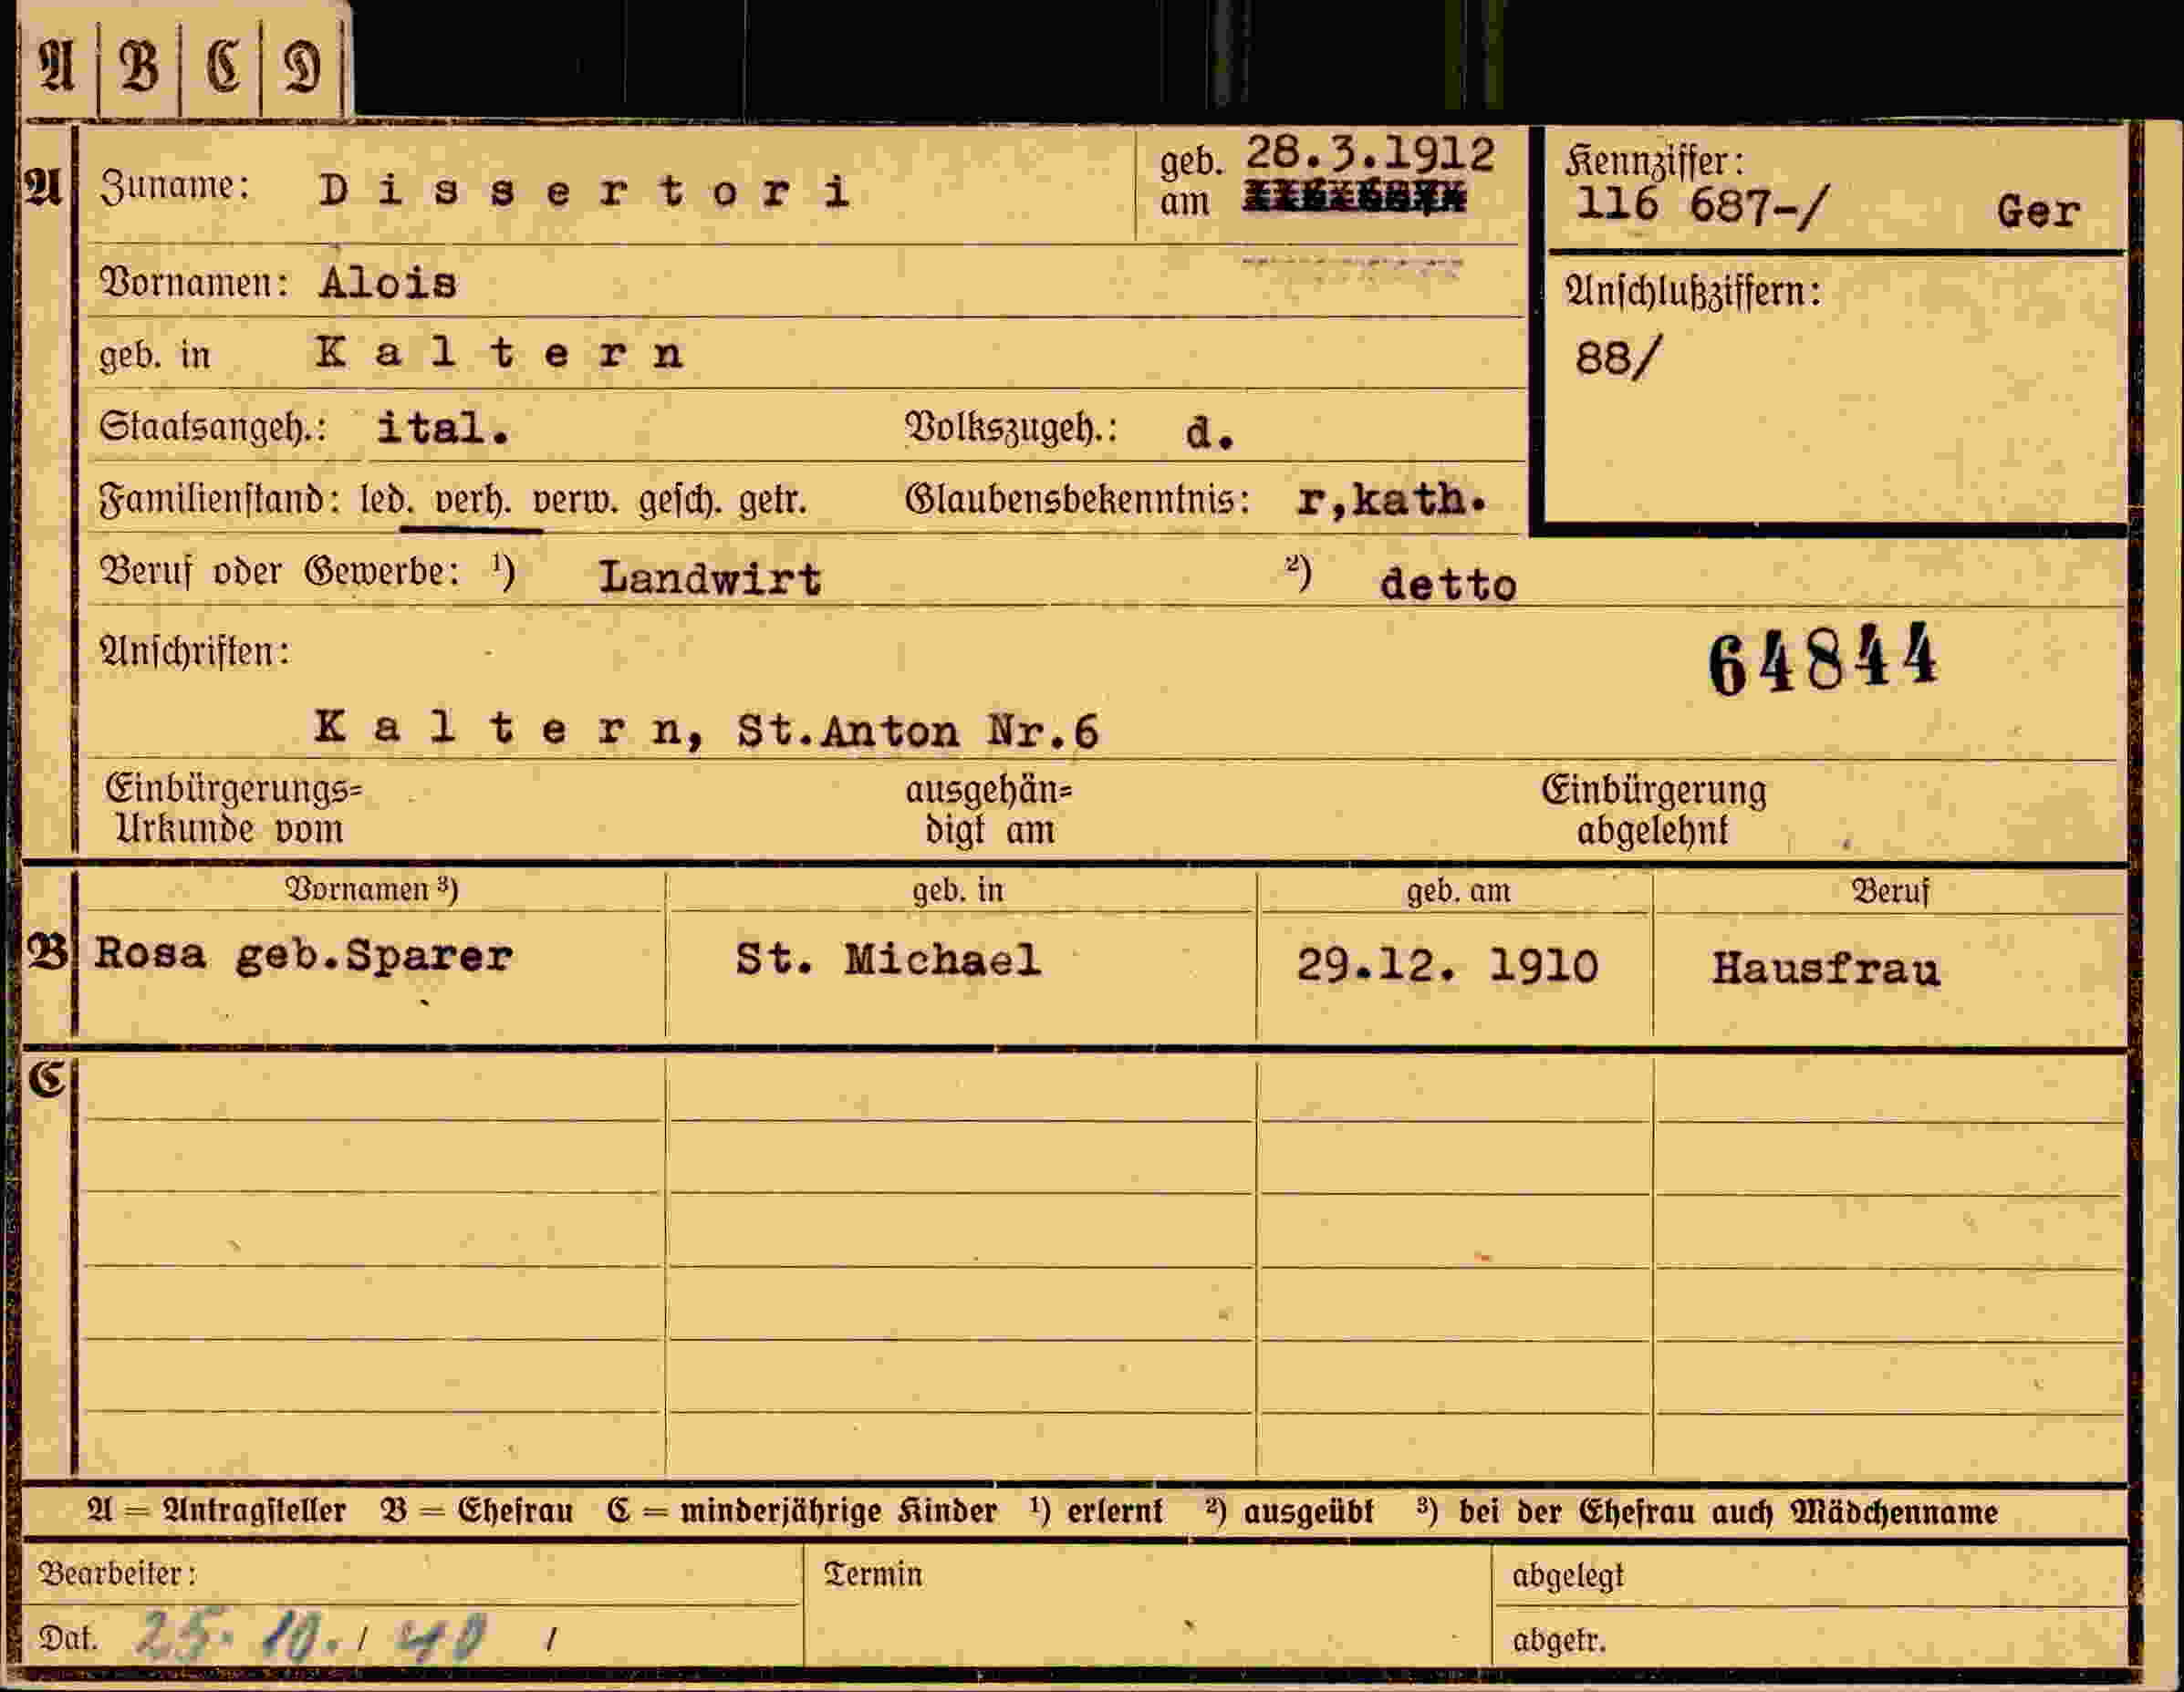 A B C D
A Zuname: Dissertori geb. am 28.3.1912 Kennziffer:
116 687-/ Ger
Vornamen: Alois Anschlußziffern:
geb. in Kaltern 88/
Staatsangeh.: ital. Volkszugeh.: d.
Familienstand: led. verh. verw. gesch. getr. Glaubensbekenntnis: r,kath.
Beruf oder Gewerbe: ¹) Landwirt ²) detto
Anschriften: 64844
Kaltern, St.Anton Nr.6
Einbürgerungs= ausgehän= Einbürgerung
Urkunde vom digt am abgelehnt
Vornamen ³) geb. in geb. am Beruf
B Rosa geb.Sparer St. Michael 29.12. 1910 Hausfrau
C
A = Antragsteller B = Ehefrau C = minderjährige Kinder ¹) erlernt ²) ausgeübt ³) bei der Ehefrau auch Mädchenname
Bearbeiter: Termin abgelegt
Dat. 25. 10. / 40 / abgetr.